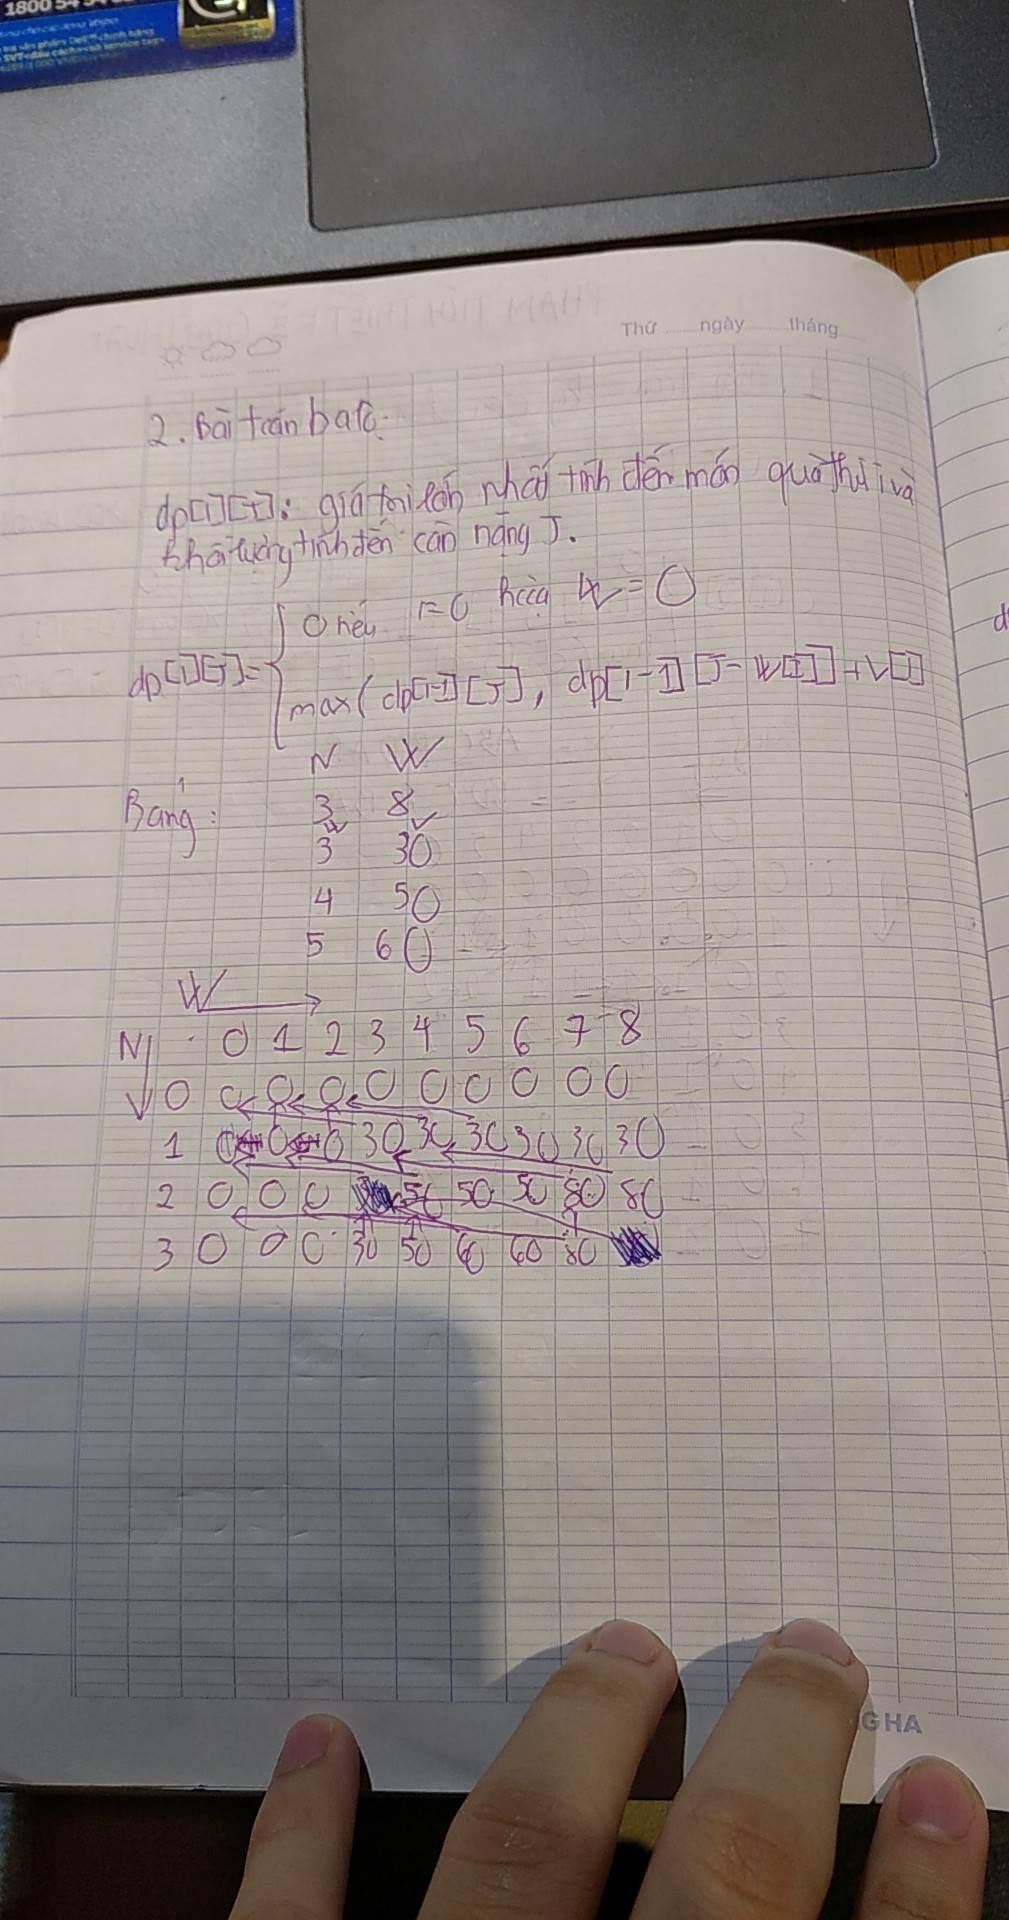 1800 54
SVT
Thứ ngày tháng
2. Bài toán balo.
dp[i][j]: giá trị lớn nhất tính đến món quà thứ i và
khối lượng tính đến cân nặng J.
0 nếu i=0 hoặc W=0
dp[i][J]=
max(dp[i-1][J], dp[i-1][J-W[I]]+V[I]
N W
Bảng: 3 8
W V
3 30
4 50
5 60
W
N 0 1 2 3 4 5 6 7 8
0 0 0 0 0 0 0 0 0 0
1 0 0 0 30 30 30 30 30 30
2 0 0 0 50 50 50 80 80
3 0 0 0 30 50 60 60 80
GHA